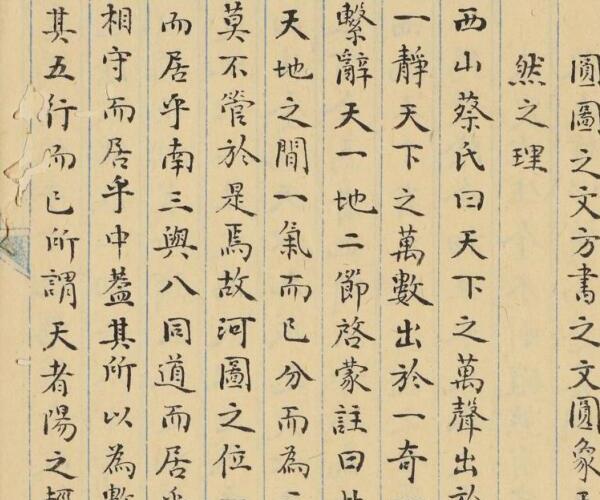 圓圖之文方書之文圓象
然之理
西山蔡氏曰天下之萬聲出於
一靜天下之萬數出於一奇
繫辭天一地二節啓蒙註曰
天地之間一氣而已分而為
莫不管於是焉故河圖之位
而居乎南三與八同道而居乎
相守而居乎中蓋其所以為數
其五行而已所謂天者陽之輕